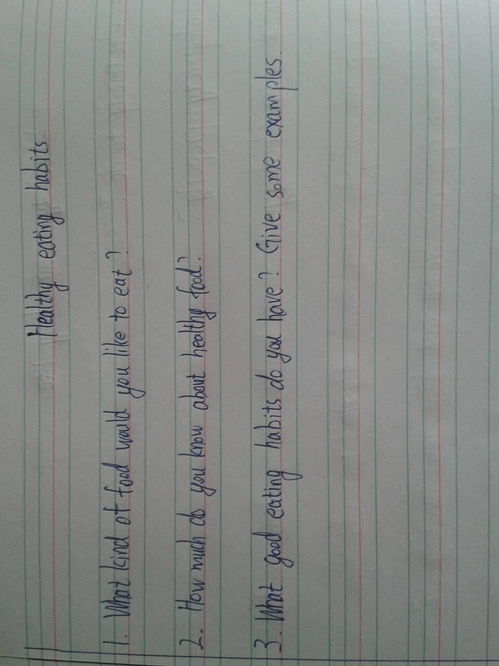 Healthy eating habits
1. What kind of food would you like to eat?
2. How much do you know about healthy food?
3. What good eating habits do you have? Give some examples.